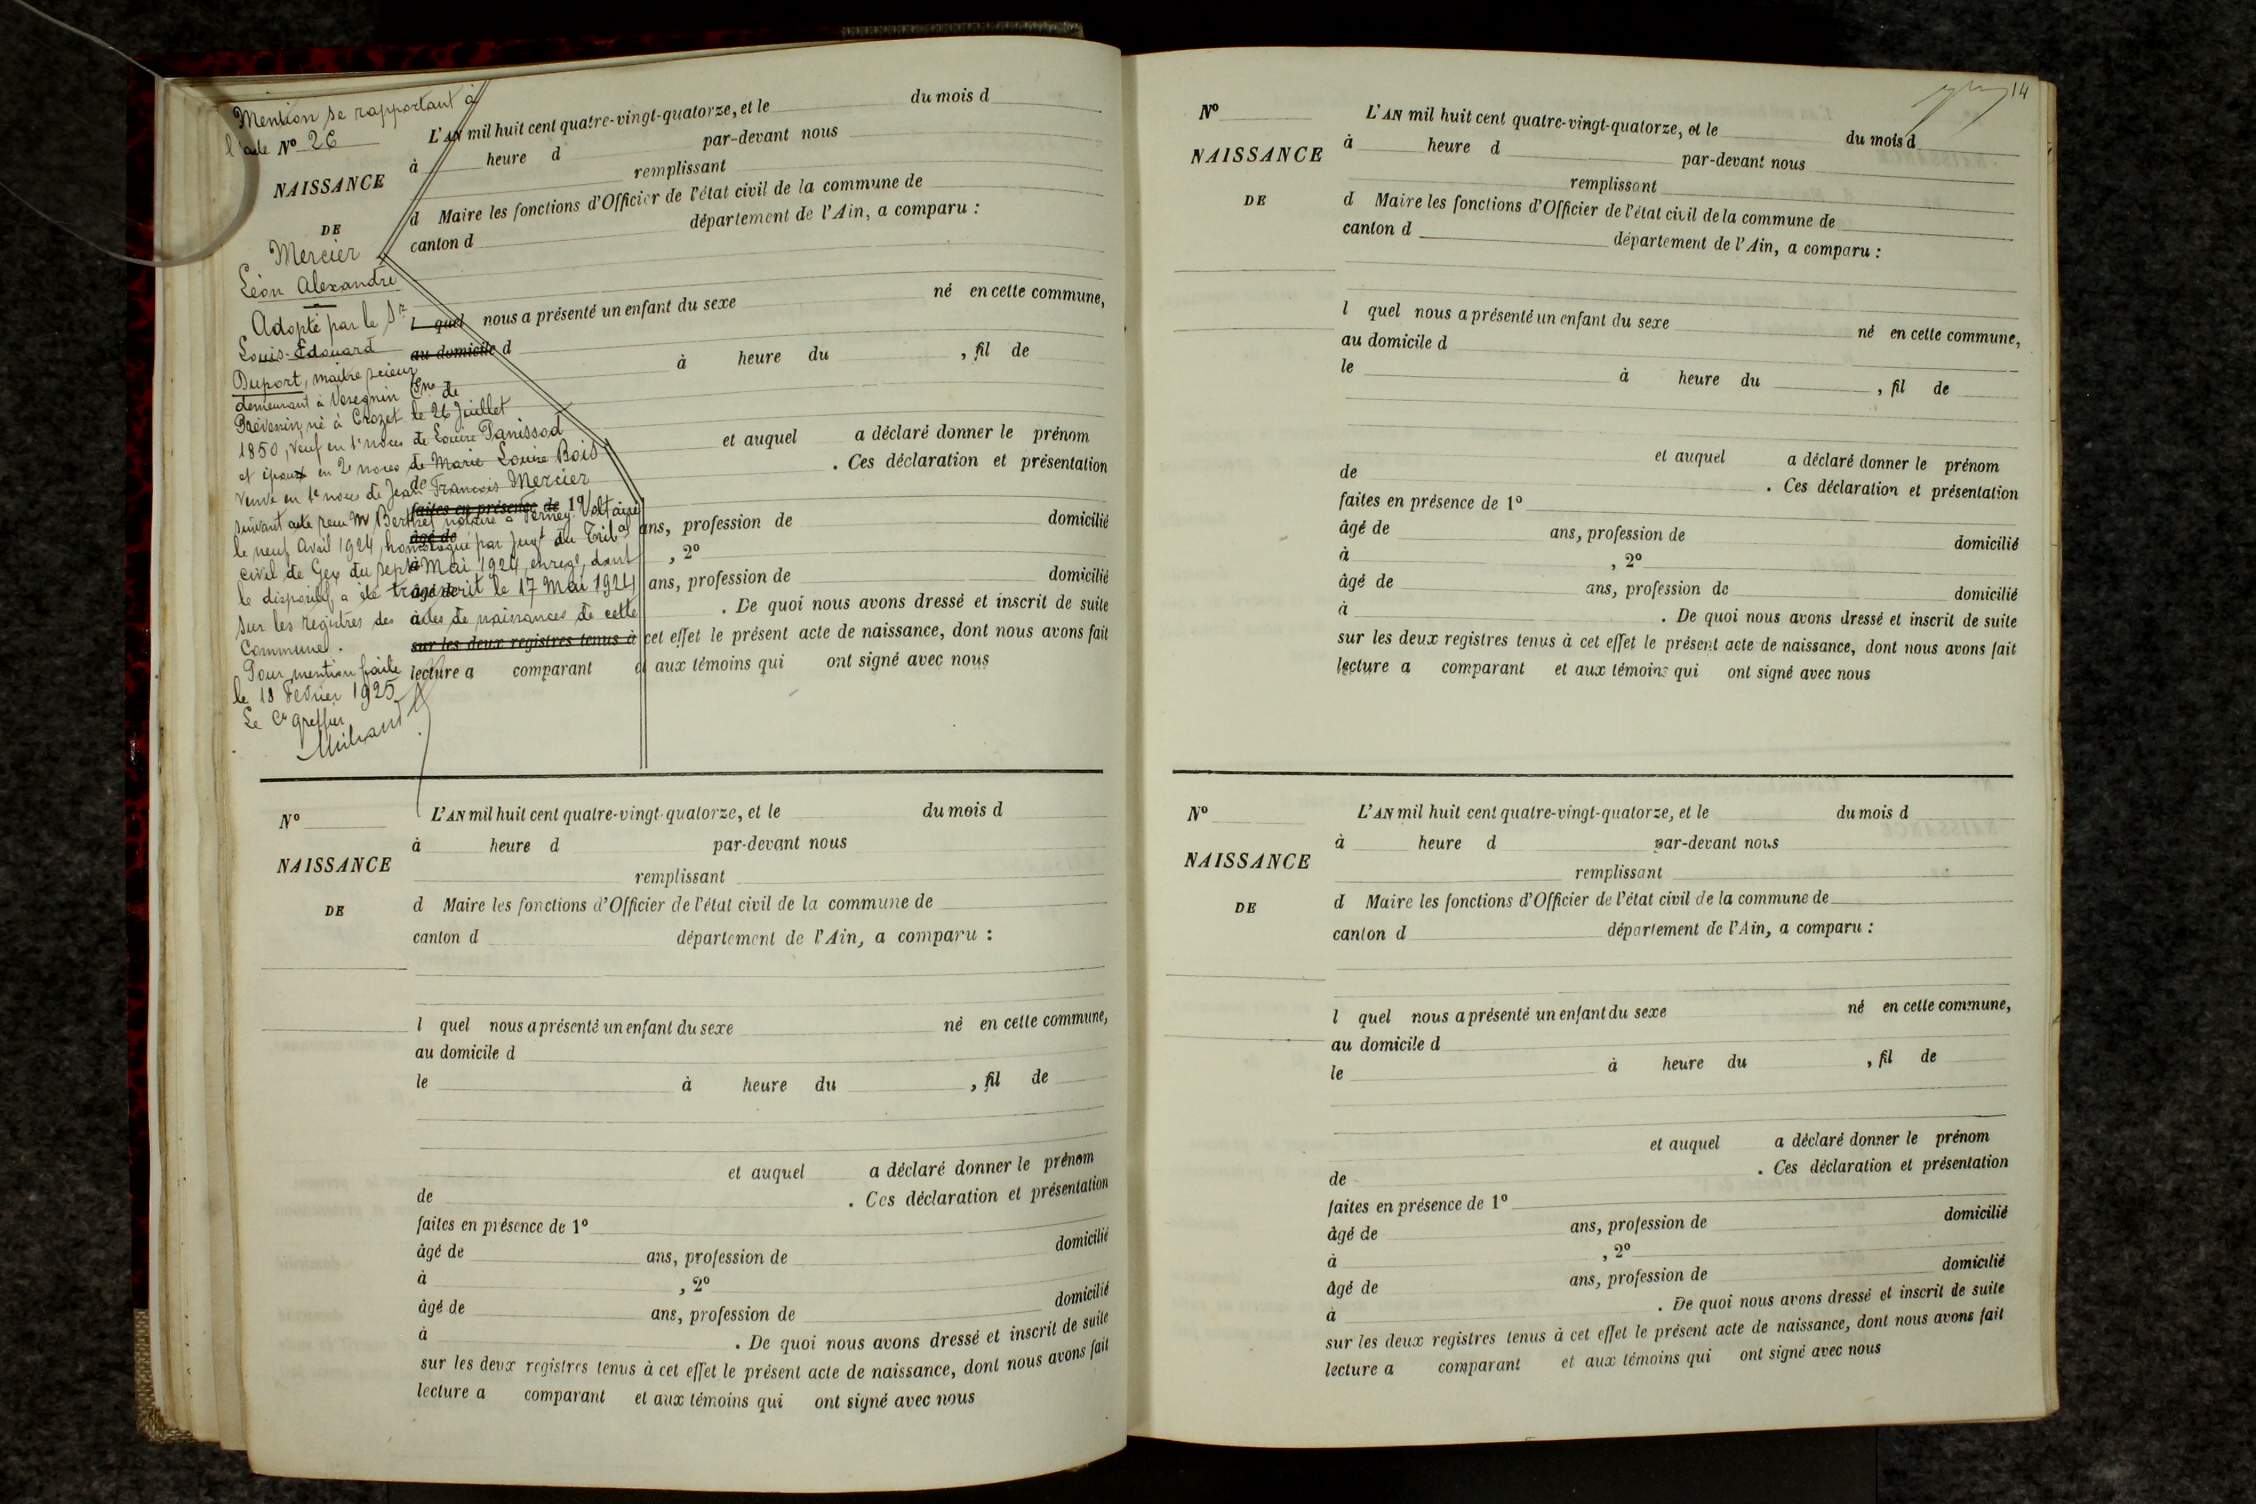 Mention se rapportant à
l'acte Nº 26
NAISSANCE
DE
Mercier
Léon Alexandre
Adopté par le Sr
Louis-Edouard
Duport, maître scieur
demeurant à Vésegnin Cne de
Prévessin, né à Crozet le 26 Juillet
1850, veuf en 1e noces de Louise Panissod
et époux en 2e noces de Marie Louise Bois
veuve en 1e noces de Jean François Mercier
suivant acte reçu Me Berthet notaire à Ferney-Voltaire
le neuf Avril 1924, homologué par Jugt du Tribal
civil de Gex du sept Mai 1924, enregé, dont
le dispositif a été transcrit le 17 Mai 1924
sur les registres des actes de naissances de cette
Commune.
Pour mention faite
le 18 Février 1925
Le Cs Greffier
L'AN mil huit cent quatre-vingt-quatorze, et le du mois d
à heure d par-devant nous
remplissant
d Maire les fonctions d'Officier de l'état civil de la commune de
canton d département de l'Ain, a comparu :
l quel nous a présenté un enfant du sexe né en cette commune,
au domicile d
à heure du , fil de
et auquel a déclaré donner le prénom
de . Ces déclaration et présentation
faites en présence de 1º
âgé de ans, profession de domicilié
à , 2º
âgé de ans, profession de domicilié
à . De quoi nous avons dressé et inscrit de suite
sur les deux registres tenus à cet effet le présent acte de naissance, dont nous avons fait
lecture a comparant et aux témoins qui ont signé avec nous
Nº
NAISSANCE
DE
L'AN mil huit cent quatre-vingt-quatorze, et le du mois d
à heure d par-devant nous
remplissant
d Maire les fonctions d'Officier de l'état civil de la commune de
canton d département de l'Ain, a comparu :
l quel nous a présenté un enfant du sexe né en cette commune,
au domicile d
le à heure du , fil de
et auquel a déclaré donner le prénom
de . Ces déclaration et présentation
faites en présence de 1º
âgé de ans, profession de domicilié
à , 2º
âgé de ans, profession de domicilié
à . De quoi nous avons dressé et inscrit de suite
sur les deux registres tenus à cet effet le présent acte de naissance, dont nous avons fait
lecture a comparant et aux témoins qui ont signé avec nous
14
Nº
NAISSANCE
DE
L'AN mil huit cent quatre-vingt-quatorze, et le du mois d
à heure d par-devant nous
remplissant
d Maire les fonctions d'Officier de l'état civil de la commune de
canton d département de l'Ain, a comparu :
l quel nous a présenté un enfant du sexe né en cette commune,
au domicile d
le à heure du , fil de
et auquel a déclaré donner le prénom
de . Ces déclaration et présentation
faites en présence de 1º
âgé de ans, profession de domicilié
à , 2º
âgé de ans, profession de domicilié
à . De quoi nous avons dressé et inscrit de suite
sur les deux registres tenus à cet effet le présent acte de naissance, dont nous avons fait
lecture a comparant et aux témoins qui ont signé avec nous
Nº
NAISSANCE
DE
L'AN mil huit cent quatre-vingt-quatorze, et le du mois d
à heure d par-devant nous
remplissant
d Maire les fonctions d'Officier de l'état civil de la commune de
canton d département de l'Ain, a comparu :
l quel nous a présenté un enfant du sexe né en cette commune,
au domicile d
le à heure du , fil de
et auquel a déclaré donner le prénom
de . Ces déclaration et présentation
faites en présence de 1º
âgé de ans, profession de domicilié
à , 2º
âgé de ans, profession de domicilié
à . De quoi nous avons dressé et inscrit de suite
sur les deux registres tenus à cet effet le présent acte de naissance, dont nous avons fait
lecture a comparant et aux témoins qui ont signé avec nous